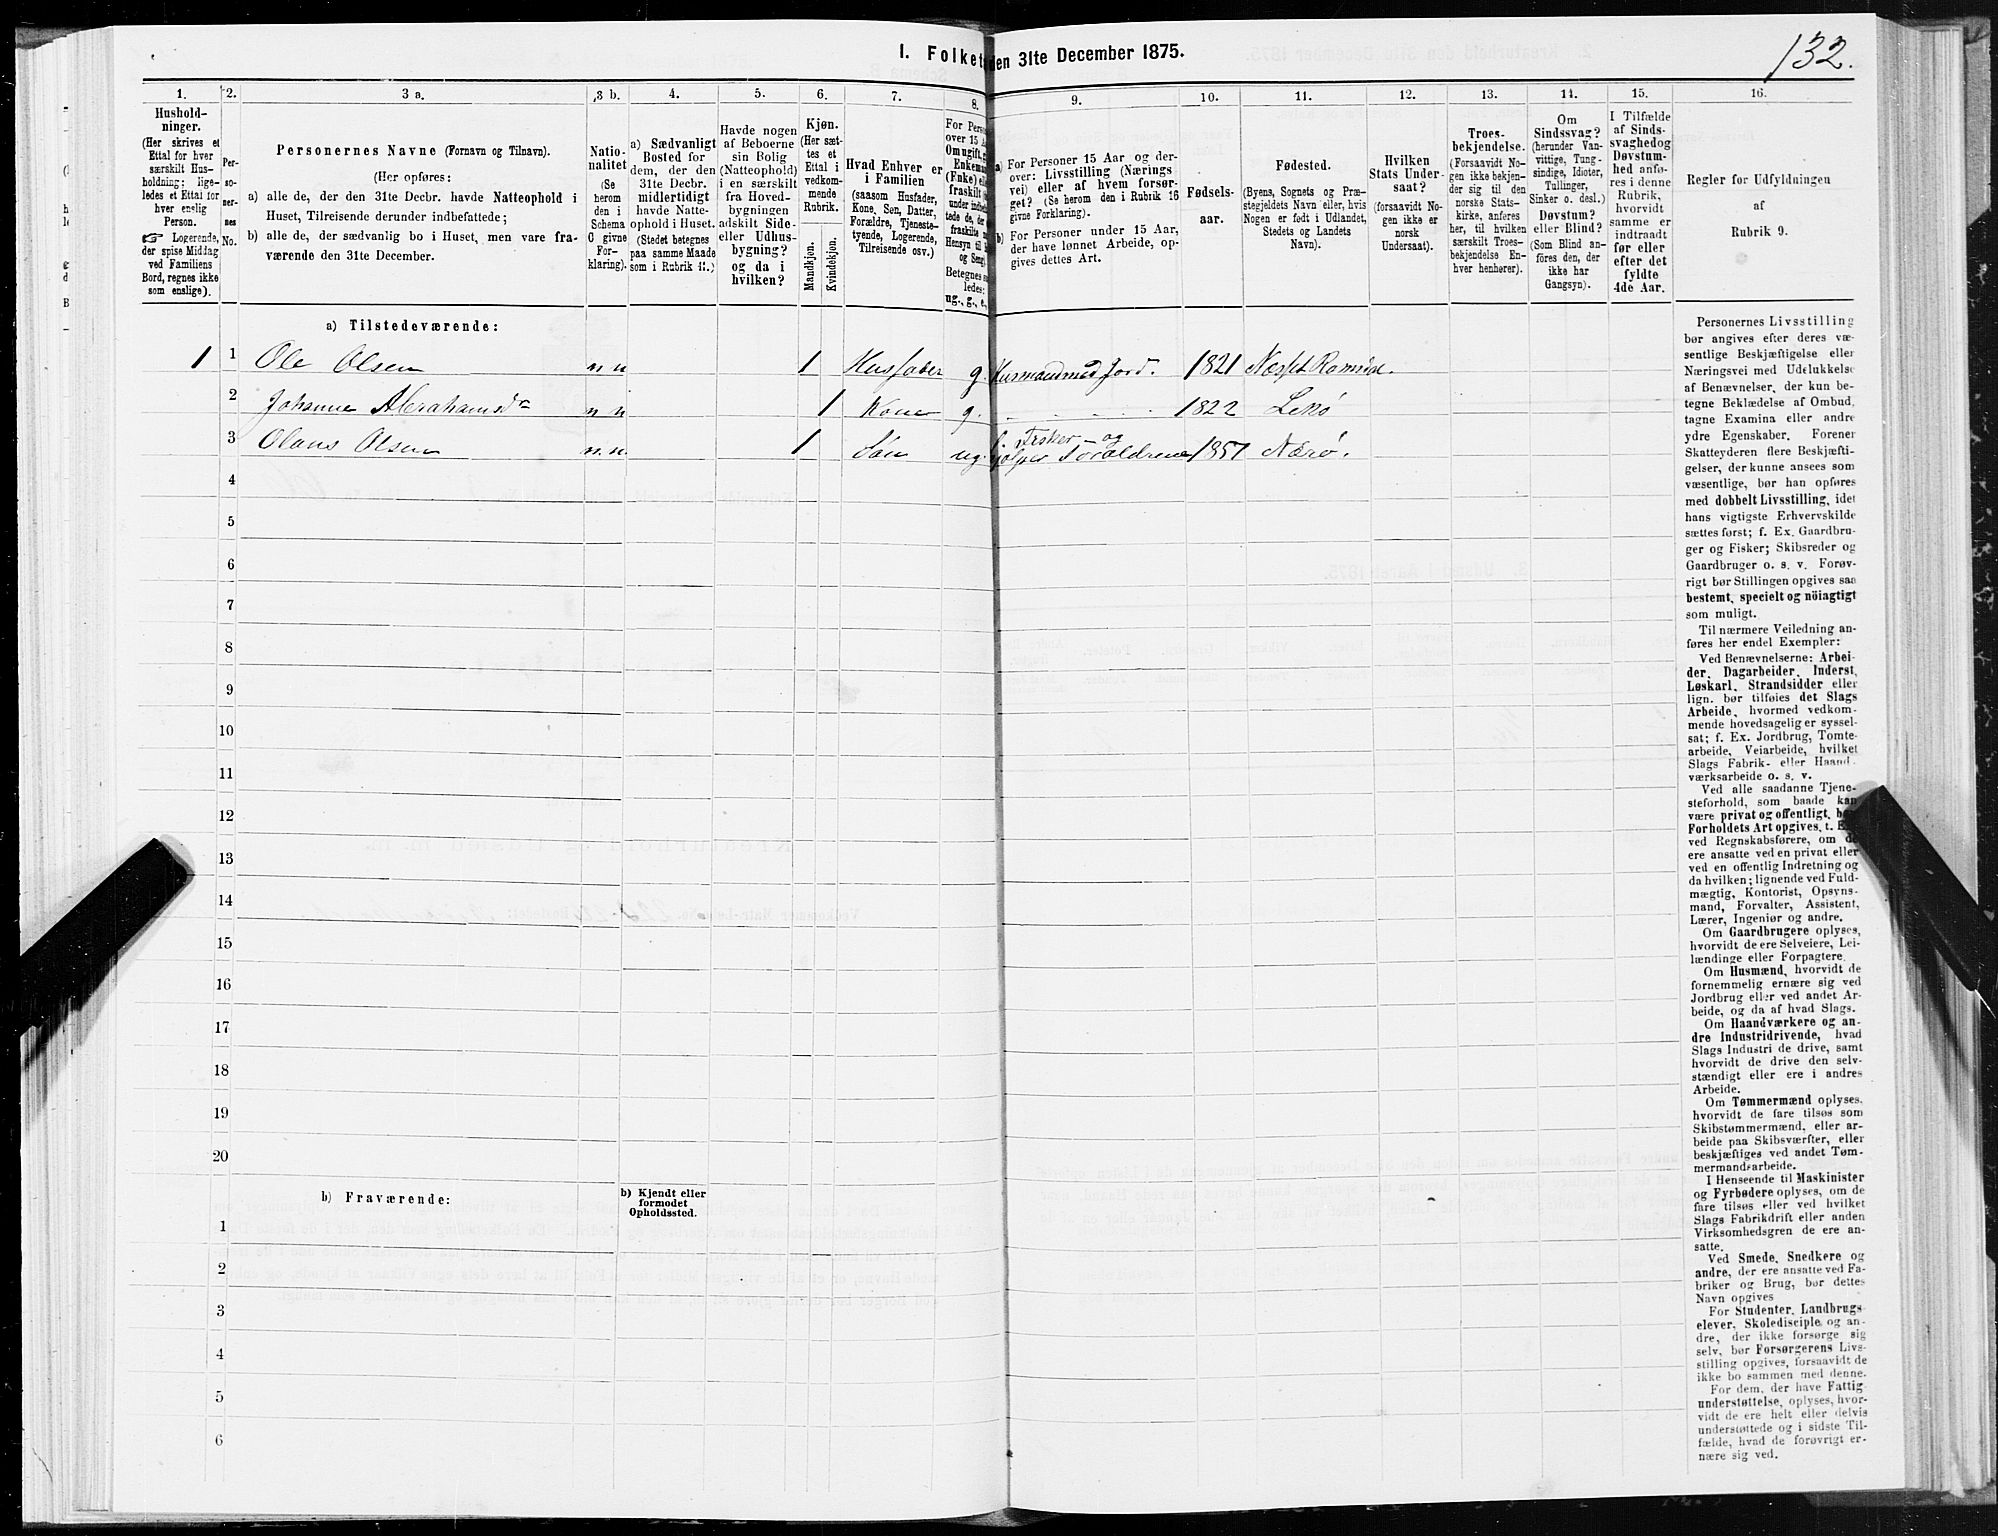 132.
I. Folket
den 31te December 1875.
1.
2.
3 a.
3 b.
4.
5.
6.
7.
8.
9.
10.
11.
12.
13.
14.
15.
16.
Hushold-
ninger.
(Her skrives et
Ettal for hver
særskilt Hus-
holdning; lige-
ledes et Ettal for
hver enslig
Person.
☞ Logerende,
der spise Middag
ved Familiens
Bord, regnes ikke
som enslige).
Per-
so-
ner-
nes
No.
Personernes Navne (Fornavn og Tilnavn).
(Her opføres:
a) alle de, der den 31te Decbr. havde Natteophold i
Huset, Tilreisende derunder indbefattede;
b) alle de, der sædvanlig bo i Huset, men vare fra-
værende den 31te December.
Natio-
nalitet
(Se
herom
den i
Schema
6 givne
For-
klaring).
a) Sædvanligt
Bosted for
dem, der den
31te Decbr.
midlertidigt
havde Natte-
ophold i Huset.
(Stedet betegnes
paa samme Maade
som i Rubrik 11.)
Havde nogen
af Beboerne
sin Bolig
(Natteophold)
i en særskilt
fra Hoved-
bygningen
adskilt Side-
eller Udhus-
bygning?
og da i
hvilken?
Kjøn.
(Her sæt-
tes et
Ettal i
vedkom-
mende
Rubrik.
Mandkjøn.
Kvindekjøn.
Hvad Enhver er
i Familien
(saasom Husfader,
Kone, Søn, Datter,
Forældre, Tjeneste-
tyende, Logerende,
Tilreisende osv.)
For Pers
over 15 A
Om ugift, g
Enkem
(Enke) elle
fraskilt
under indb
tede de, d
fraskilte
Hensyn til B
og Seng
Betegnes s
ledes:
ug., g., e.,
a) For Personer 15 Aar og der-
over: Livsstilling (Nærings
vei) eller af hvem forsør-
get? (Se herom den i Rubrik 16
givne Forklaring).
b) For Personer under 15 Aar,
der have lønnet Arbeide, op-
gives dettes Art.
Fødsels-
aar.
Fødested.
(Byens, Sognets og Præ-
stegjeldets Navn eller, hvis
Nogen er født i Udlandet,
Stedets og Landets
Navn).
Hvilken
Stats Under-
saat?
(forsaavidt No-
gen ikke er
norsk
Undersaat).
Troes-
bekjendelse.
(Forsaavidt No-
gen ikke bekjen-
der sig til den
norske Stats-
kirke, anføres
her, til hvilken
særskilt Troes-
bekjendelse En-
hver henhører).
Om
Sindssvag?
(herunder Van-
vittige, Tung-
sindige, Idioter,
Tullinger,
Sinker o. desl.)
Døvstum?
eller Blind?
(Som Blind an-
føres den, der
ikke har
Gangsyn).
I Tilfælde
af Sinds-
svaghed og
Døvstum-
hed anfø-
res i denne
Rubrik,
hvorvidt
samme er
indtraadt
før eller
efter det
fyldte
4de Aar.
Regler for Udfyldningen
af
Rubrik 9.
a) Tilstedeværende:
1 1 Ole Olsen n n 1 Husfader g. Husmand med Jord. 1821 Næsset Romsdal.
2 Johanne Abrahamsdr n n 1 Kone g. 1822 Lekø
3 Olaus Olsen n. n. 1 Søn ug. Fisker - og
hjælper Forældrene 1857 Nærø.
4
5
6
7
8
9
10
11
12
13
14
15
16
17
18
19
20
b) Fraværende:
b) Kjendt eller
formodet
Opholdssted.
1
2
3
4
5
6
Personernes Livsstilling
bør angives efter deres væ-
sentlige Beskjæftigelse eller
Næringsvei med Udelukkelse
af Benævnelser, der kun be-
tegne Beklædelse af Ombud,
tagne Examina eller andre
ydre Egenskaber. Forener
Skatteyderen flere Beskjæfti-
gelser, der kunne ansees som
væsentlige, bør han opføres
med dobbelt Livsstilling, idet
hans vigtigste Erhvervskilde
sættes først; f. Ex. Gaardbru-
ger og Fisker; Skibsreder og
Gaardbruger o. s. v. Forøv-
rigt bør Stillingen opgives saa
bestemt, specielt og nöiagtigt
som muligt.
Til nærmere Veiledning an-
føres her endel Exempler:
Ved Benævnelserne: Arbei-
der, Dagarbeider, Inderst,
Løskarl, Strandsidder eller
lign. bør tilføies det Slags
Arbeide, hvormed vedkom-
mende hovedsagelig er syssel-
sat; f. Ex. Jordbrug, Tomte-
arbeide, Veiarbeide, hvilket
Slags Fabrik- eller Haand-
værksarbeide o. s. v.
Ved alle saadanne Tjene-
steforhold, som baade kan
være privat og offentligt, bør
Forholdets Art opgives, t. E
ved Regnskabsførere, om de
ere ansatte ved en privat eller
ved en offentlig Indretning og
da hvilken; lignende ved Fuld-
mægtig, Kontorist, Opsyns-
mand, Forvalter, Assistent,
Lærer, Ingeniør og andre.
Om Gaardbrugere oplyses,
hvorvidt de ere Selveiere, Lei-
lændinge eller Forpagtere.
Om Husmænd, hvorvidt de
fornemmelig ernære sig ved
Jordbrug eller ved andet Ar-
beide, og da af hvad Slags.
Om Haandværkere og an-
dre Industridrivende, hvad
Slags Industri de drive, samt
hvorvidt de drive den selv-
stændigt eller ere i andres
Arbeide.
Om Tømmermænd oplyses,
hvorvidt de fare tilsøs som
Skibstømmermænd, eller ar-
beide paa Skibsværfter, eller
beskjæftiges ved andet Tøm-
mermandsarbeide.
I Henseende til Maskinister
og Fyrbødere oplyses, om de
fare tilsøs eller ved hvilket
Slags Fabrikdrift eller anden
Virksomhedsgren de ere an-
satte.
Ved Smede, Snedkere og
andre, der ere ansatte ved Fa-
briker og Brug, bør dettes
Navn opgives
For Studenter, Landbrugs-
elever, Skoledisciple og an-
dre, der ikke forsørge sig
selv, bør Forsørgerens Livs-
stilling opgives, forsaavidt de
ikke bo sammen med denne.
For dem, der have Fattig-
understøttelse, oplyses, hvor-
vidt de ere helt eller delvis
understøttede og i sidste Til-
fælde, hvad de forøvrigt er-
nære sig ved.